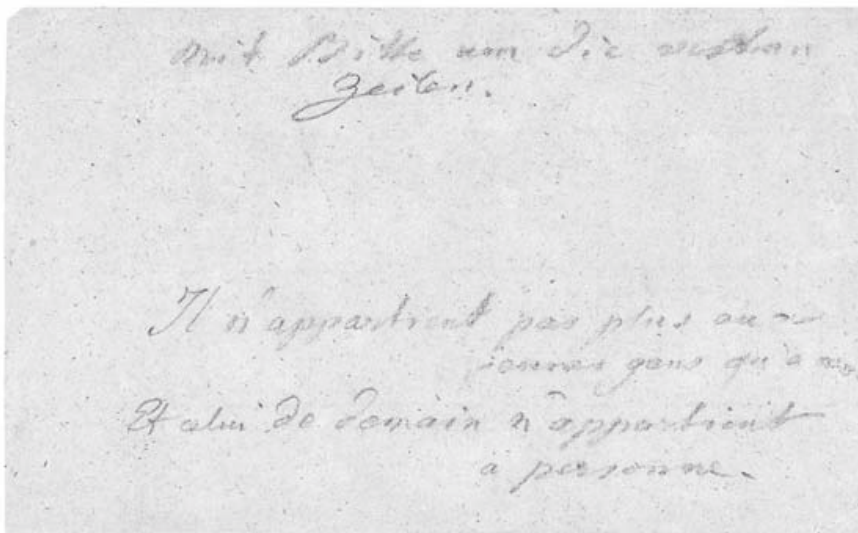 mit Bitte um die ersten
Zeilen.
Il n'appartient pas plus aux
jeunes gens qu'à
Et celui de demain n'appartient
a personne.